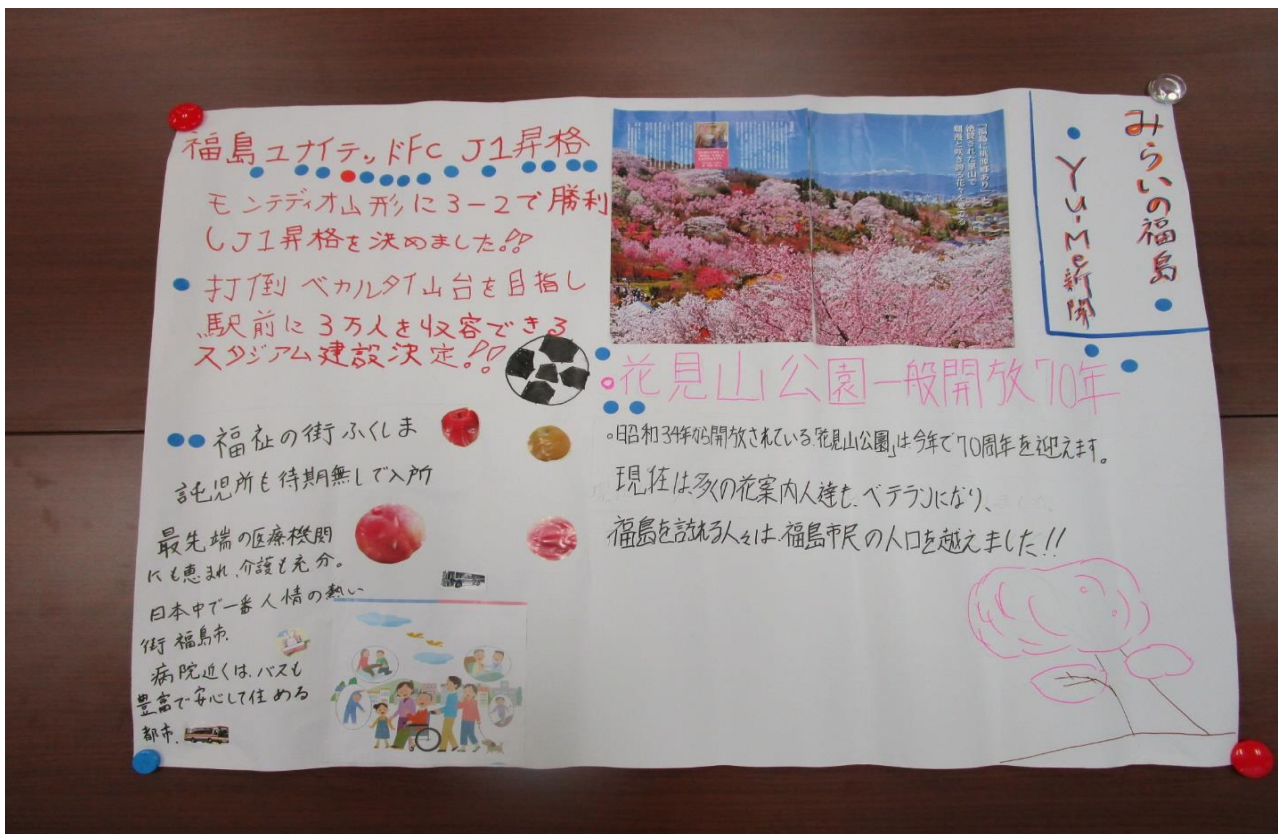 みらいの福島
Yu-Me新聞
福島ユナイテッドFC J1昇格
モンテディオ山形に3-2で勝利
しJ1昇格を決めました!!
打倒 ベカルタ仙台を目指し
駅前に3万人を収容できる
スタジアム建設決定!!
「福島に桃源郷あり」と
絶賛された里山で
爛漫と咲き誇る花々を愛でる
花見山公園一般開放70年
。昭和34年から開放されている「花見山公園」は今年で70周年を迎えます。
現在は多くの花案内人達も、ベテランになり、
福島を訪れる人々は、福島市民の人口を越えました!!
福祉の街ふくしま
託児所も待期無しで入所
最先端の医療機関
にも恵まれ、介護も充分。
日本中で一番人情の熱い
街 福島市.
病院近くは、バスも
豊富で安心して住める
都市.